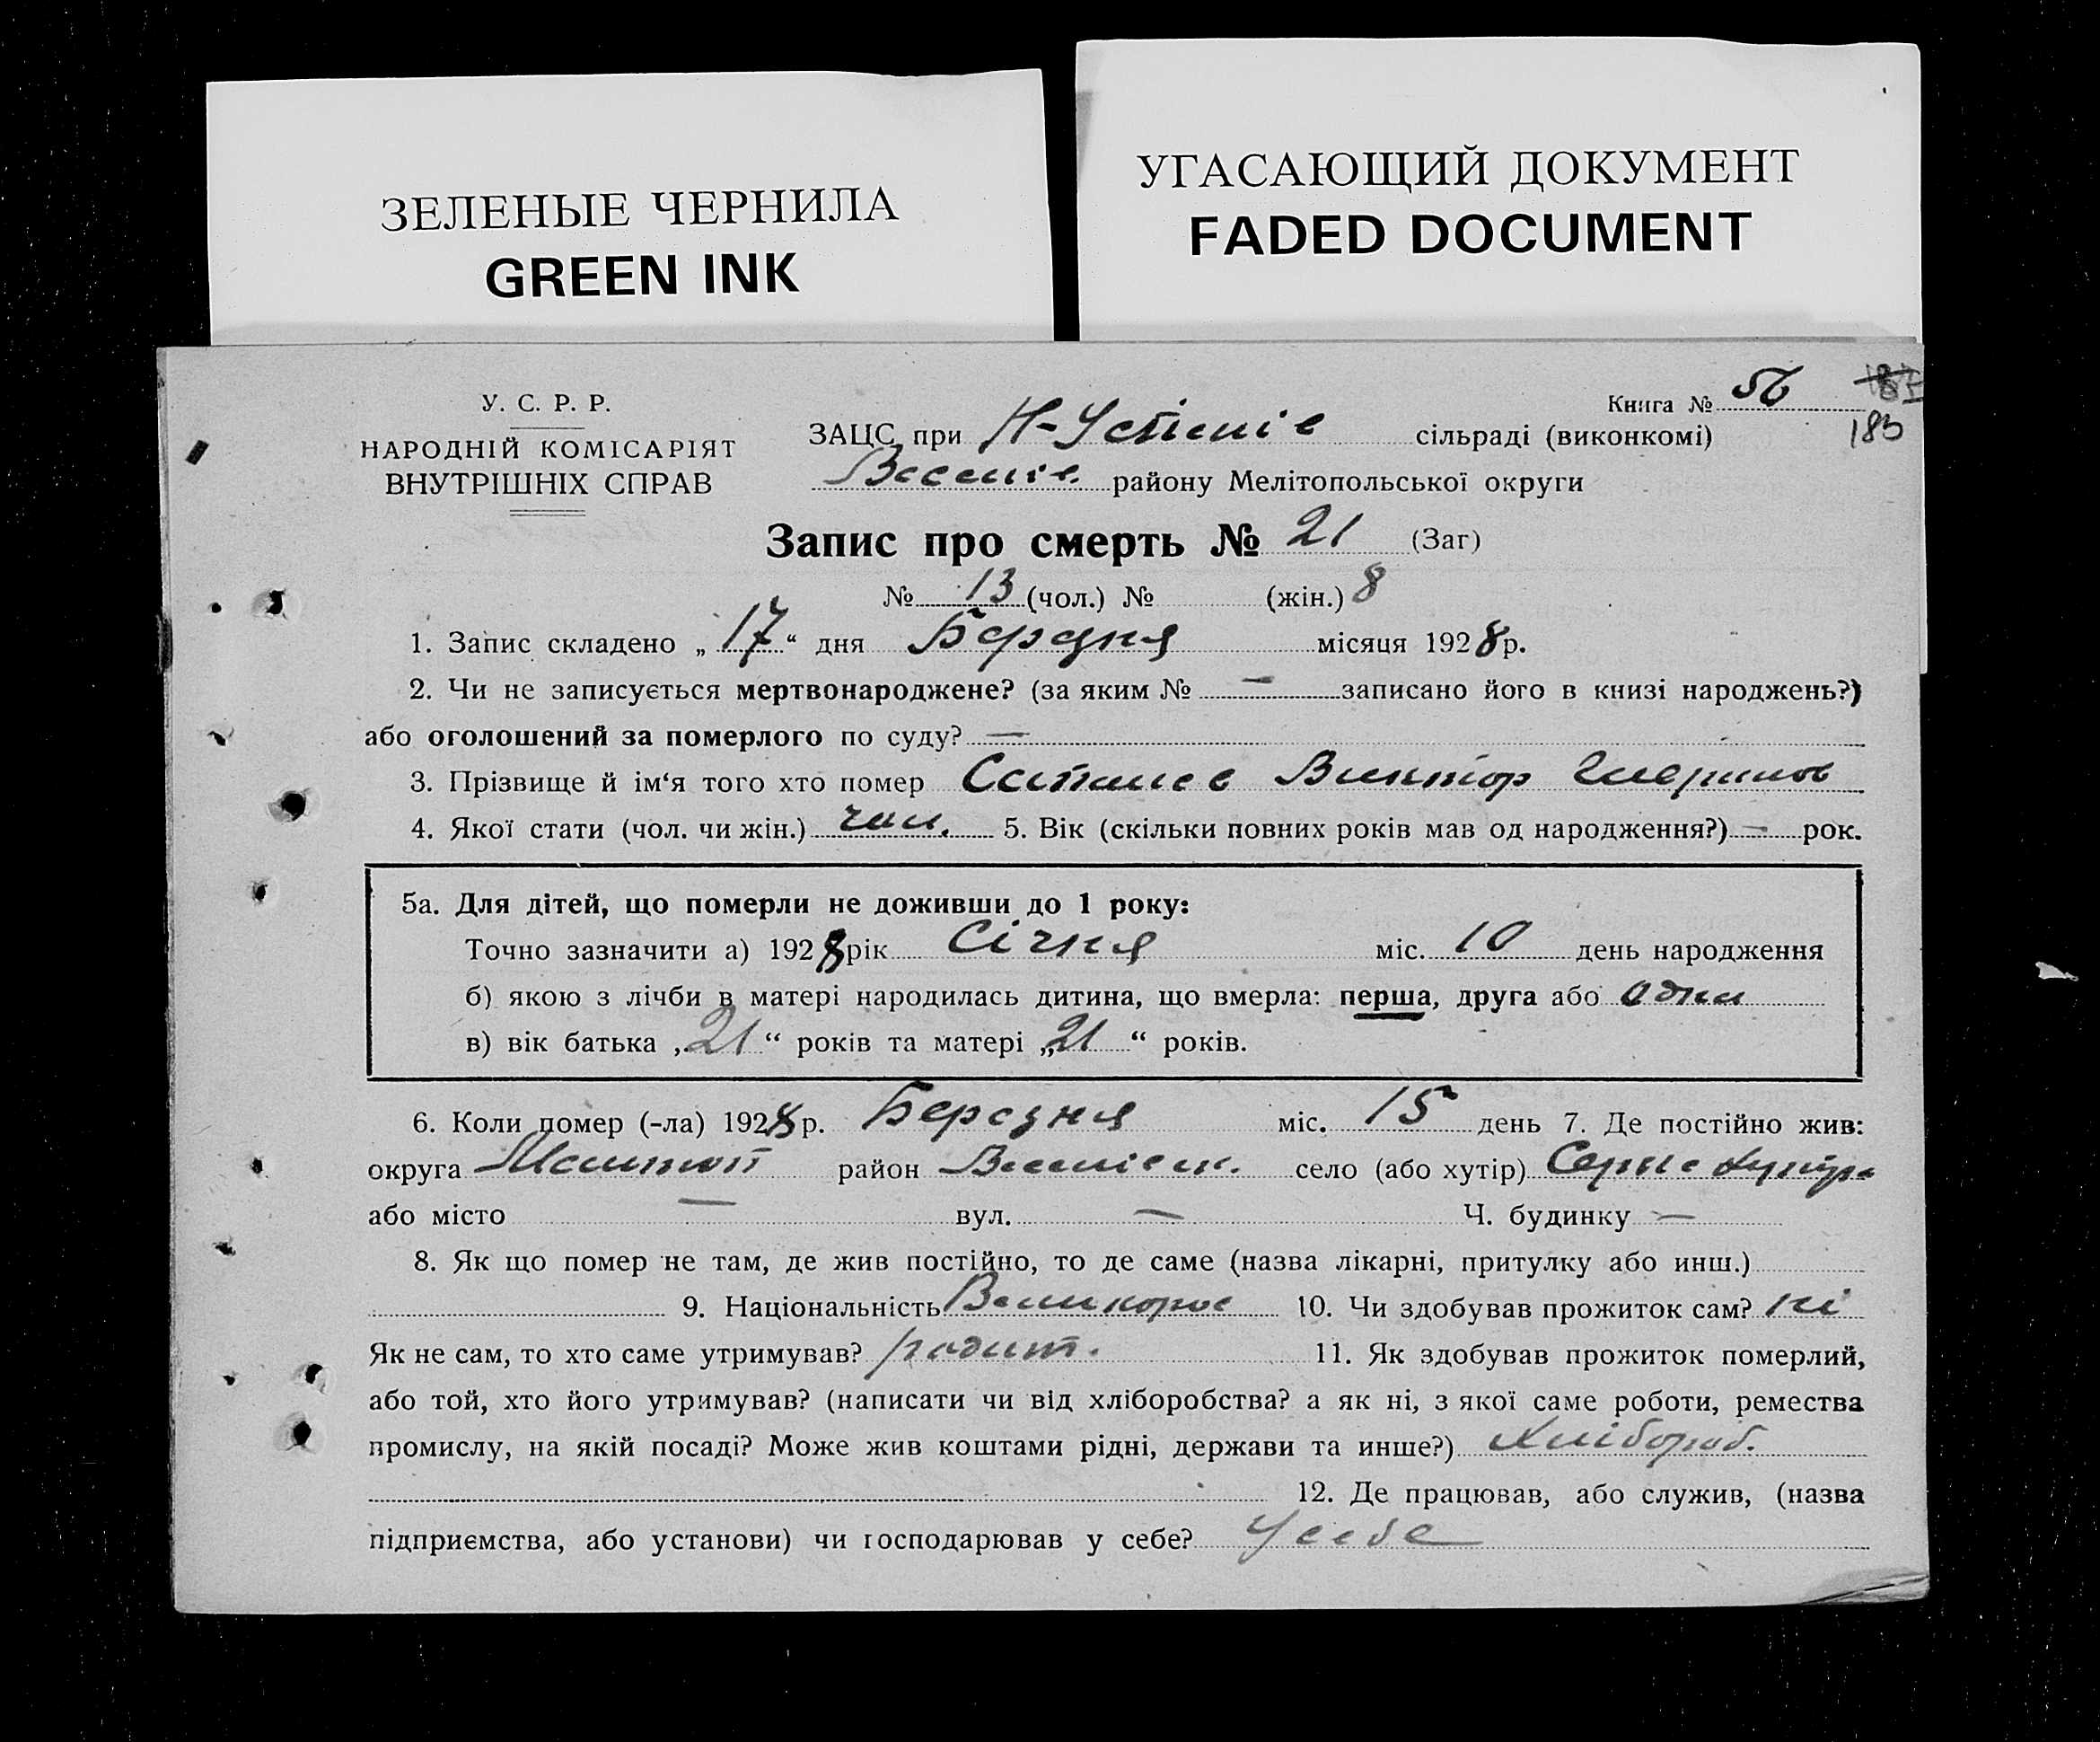 ЗЕЛЕНЫЕ ЧЕРНИЛА
GREEN INK
УГАСАЮЩИЙ ДОКУМЕНТ
FADED DOCUMENT
У. С. Р. Р.
НАРОДНІЙ КОМІСАРІЯТ
ВНУТРІШНІХ СПРАВ
Книга № 56
183
ЗАЦС при Н-Успенів сільраді (виконкомі)
Веселів. району Мелітопольської округи
Запис про смерть № 21 (Заг)
№ 13 (чол.) № (жін.) 8
1. Запис складено „17“ дня Березня місяця 1928 р.
2. Чи не записується мертвонароджене? (за яким № — записано його в книзі народжень?)
або оголошений за померлого по суду? —
3. Прізвище й ім‘я того хто помер Виктор
4. Якої стати (чол. чи жін.) чол. 5. Вік (скільки повних років мав од народження?) — рок.
5а. Для дітей, що померли не доживши до 1 року:
Точно зазначити а) 1928 рік Січня міс. 10 день народження
б) якою з лічби в матері народилась дитина, що вмерла: перша, друга або одна
в) вік батька „21“ років та матері „21“ років.
6. Коли помер (-ла) 1928 р. Березня міс. 15 день 7. Де постійно жив:
округа Мелитоп район Веселівськ. село (або хутір)
або місто — вул. — Ч. будинку —
8. Як що помер не там, де жив постійно, то де саме (назва лікарні, притулку або инш.)
9. Національність Великорос 10. Чи здобував прожиток сам? ні
Як не сам, то хто саме утримував? родит. 11. Як здобував прожиток померлий,
або той, хто його утримував? (написати чи від хліборобства? а як ні, з якої саме роботи, ремества
промислу, на якій посаді? Може жив коштами рідні, держави та инше?) Хлібороб.
12. Де працював, або служив, (назва
підприємства, або установи) чи господарював у себе? У себе